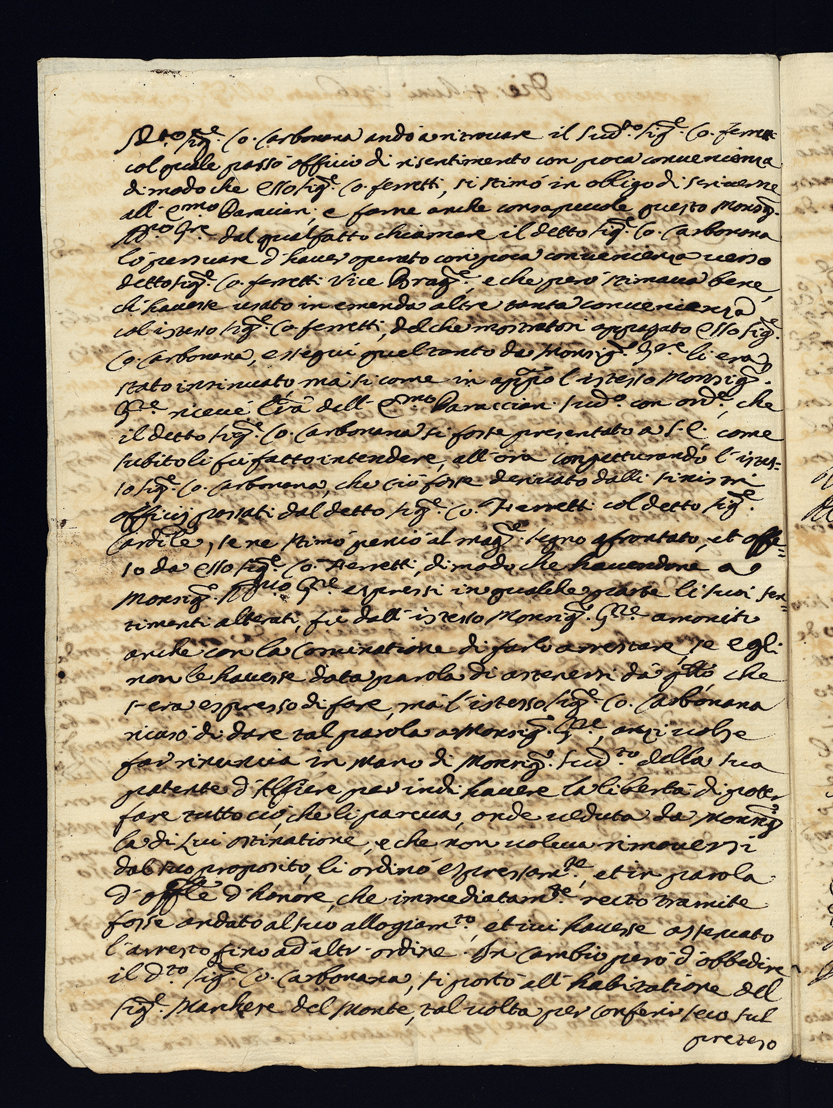 Sig.re Co. Carbonana andò a ritrovare il Sud.to Sig.e Co. ferretti
col quale passò officio di risentimento con poca convenienza
di modo che esso Sig.e Co. ferretti, si stimò in obligo di scriverne
all' e farne anche consapevole questo Monsig.
dal qual fatto chiamare il detto Sig.e Co. Carbonana
lo persuase d'haver operato con poca convenienza verso
detto Sig.e Co. ferretti Vice e che però stimava bene,
ch'havesse usato in emenda altre tanta convenienza
col istesso Sig.e Co. ferretti, del che mostratosi appagato esso Sig.e
Co. Carbonana, esseguì quel tanto da Monsig.e G.re li era
stato insinuato ma si come in app.o l'istesso Monsig.
G.re riceve l'ra dell' Em.o Sud.o con ord.e, che
il detto Sig.e Co. Carbonana si fosse presentato a S.E. come
subito li fu fatto intendere, all'ora conjetturando l'istes-
so Sig.e Co. Carbonana, che ciò fosse derivato dalli sinistri
officij passati dal detto Sig.e Co. Ferretti col detto Sig.e
Card.le, se ne stimò perciò al mag.e segno afrontato, et offe=
so da esso Sig.e Co. Ferretti, di modo che havendone a
Monsig.e G.re espressi in qualche parte li suoi sen-
timenti alterati, fù dall'istesso Monsig.e G.re amonito
anche con la Cominatione di farlo arrestare se egli
non le havesse data parola di astenersi da q.to che
s'era espresso di fare, mà l'istesso Sig.e Co. Carbonana
ricusò di dare tal parola a Monsig.e G.re, anzi volse
far rinuncia in mano di Monsig.e Sud.to della sua
patente d'Alfiere per indi havere la libertà di poter
fare tutto ciò, che li pareva, onde veduta da Monsig.e
la di Lui ostinatione, e che non voleva rimoversi
dal suo proposito, li ordinò espressam.te, et in parola
d'off.le d'honore, che immediatam.te recto tramite
fosse andato al suo allogiam.to, et ivi havesse osservato
l'arresto fino ad altr'ordine. In cambio però d'obbedire
il d.to Sig.e Co. Carbonana, si portò all'habitatione del
Sig.e Marchese del Monte, tal volta per conferir seco sul
preteso